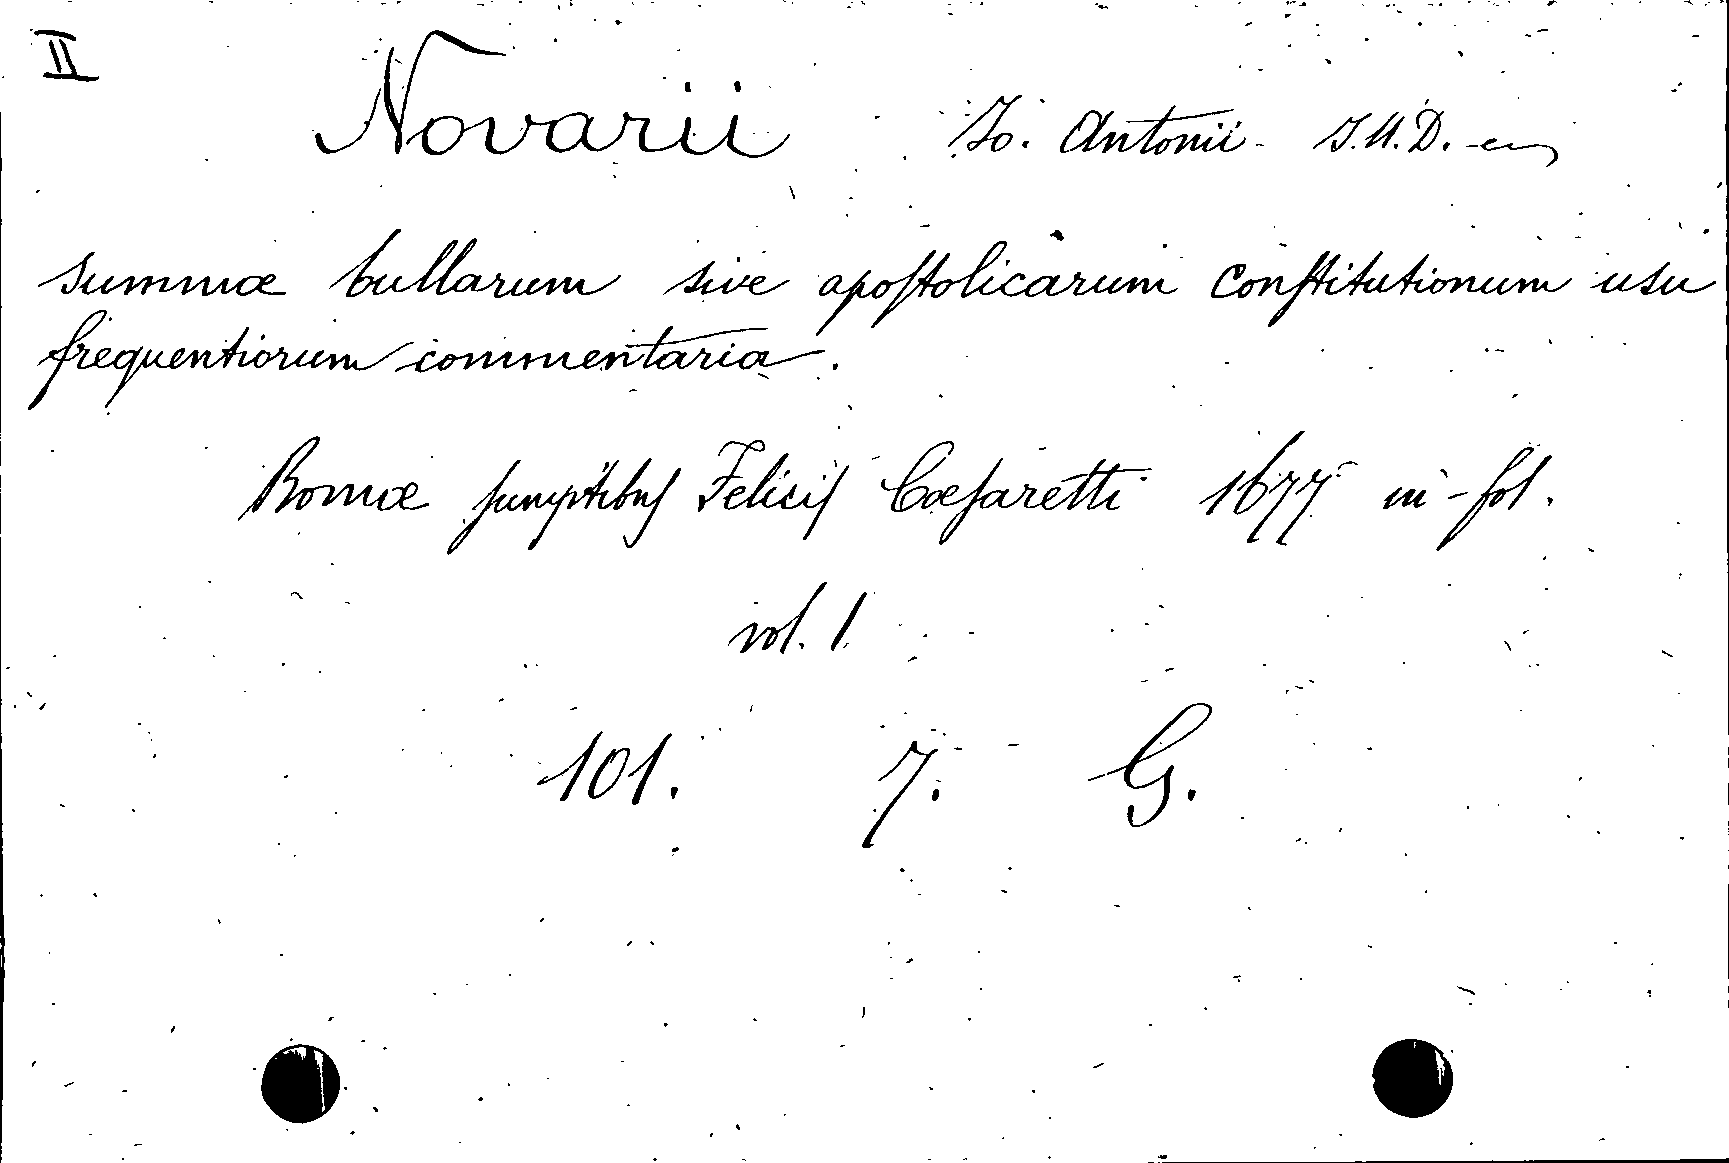 II
Novarii Jo. Antonii J.U.D. en
summæ bullarum sive apoſtolicarum conſtitutionum usu
frequentiorum commentaria.
Romæ ſumptibuſ Feliciſ Cæſaretti 1677 in-fol.
vol. 1.
101. 7. G.